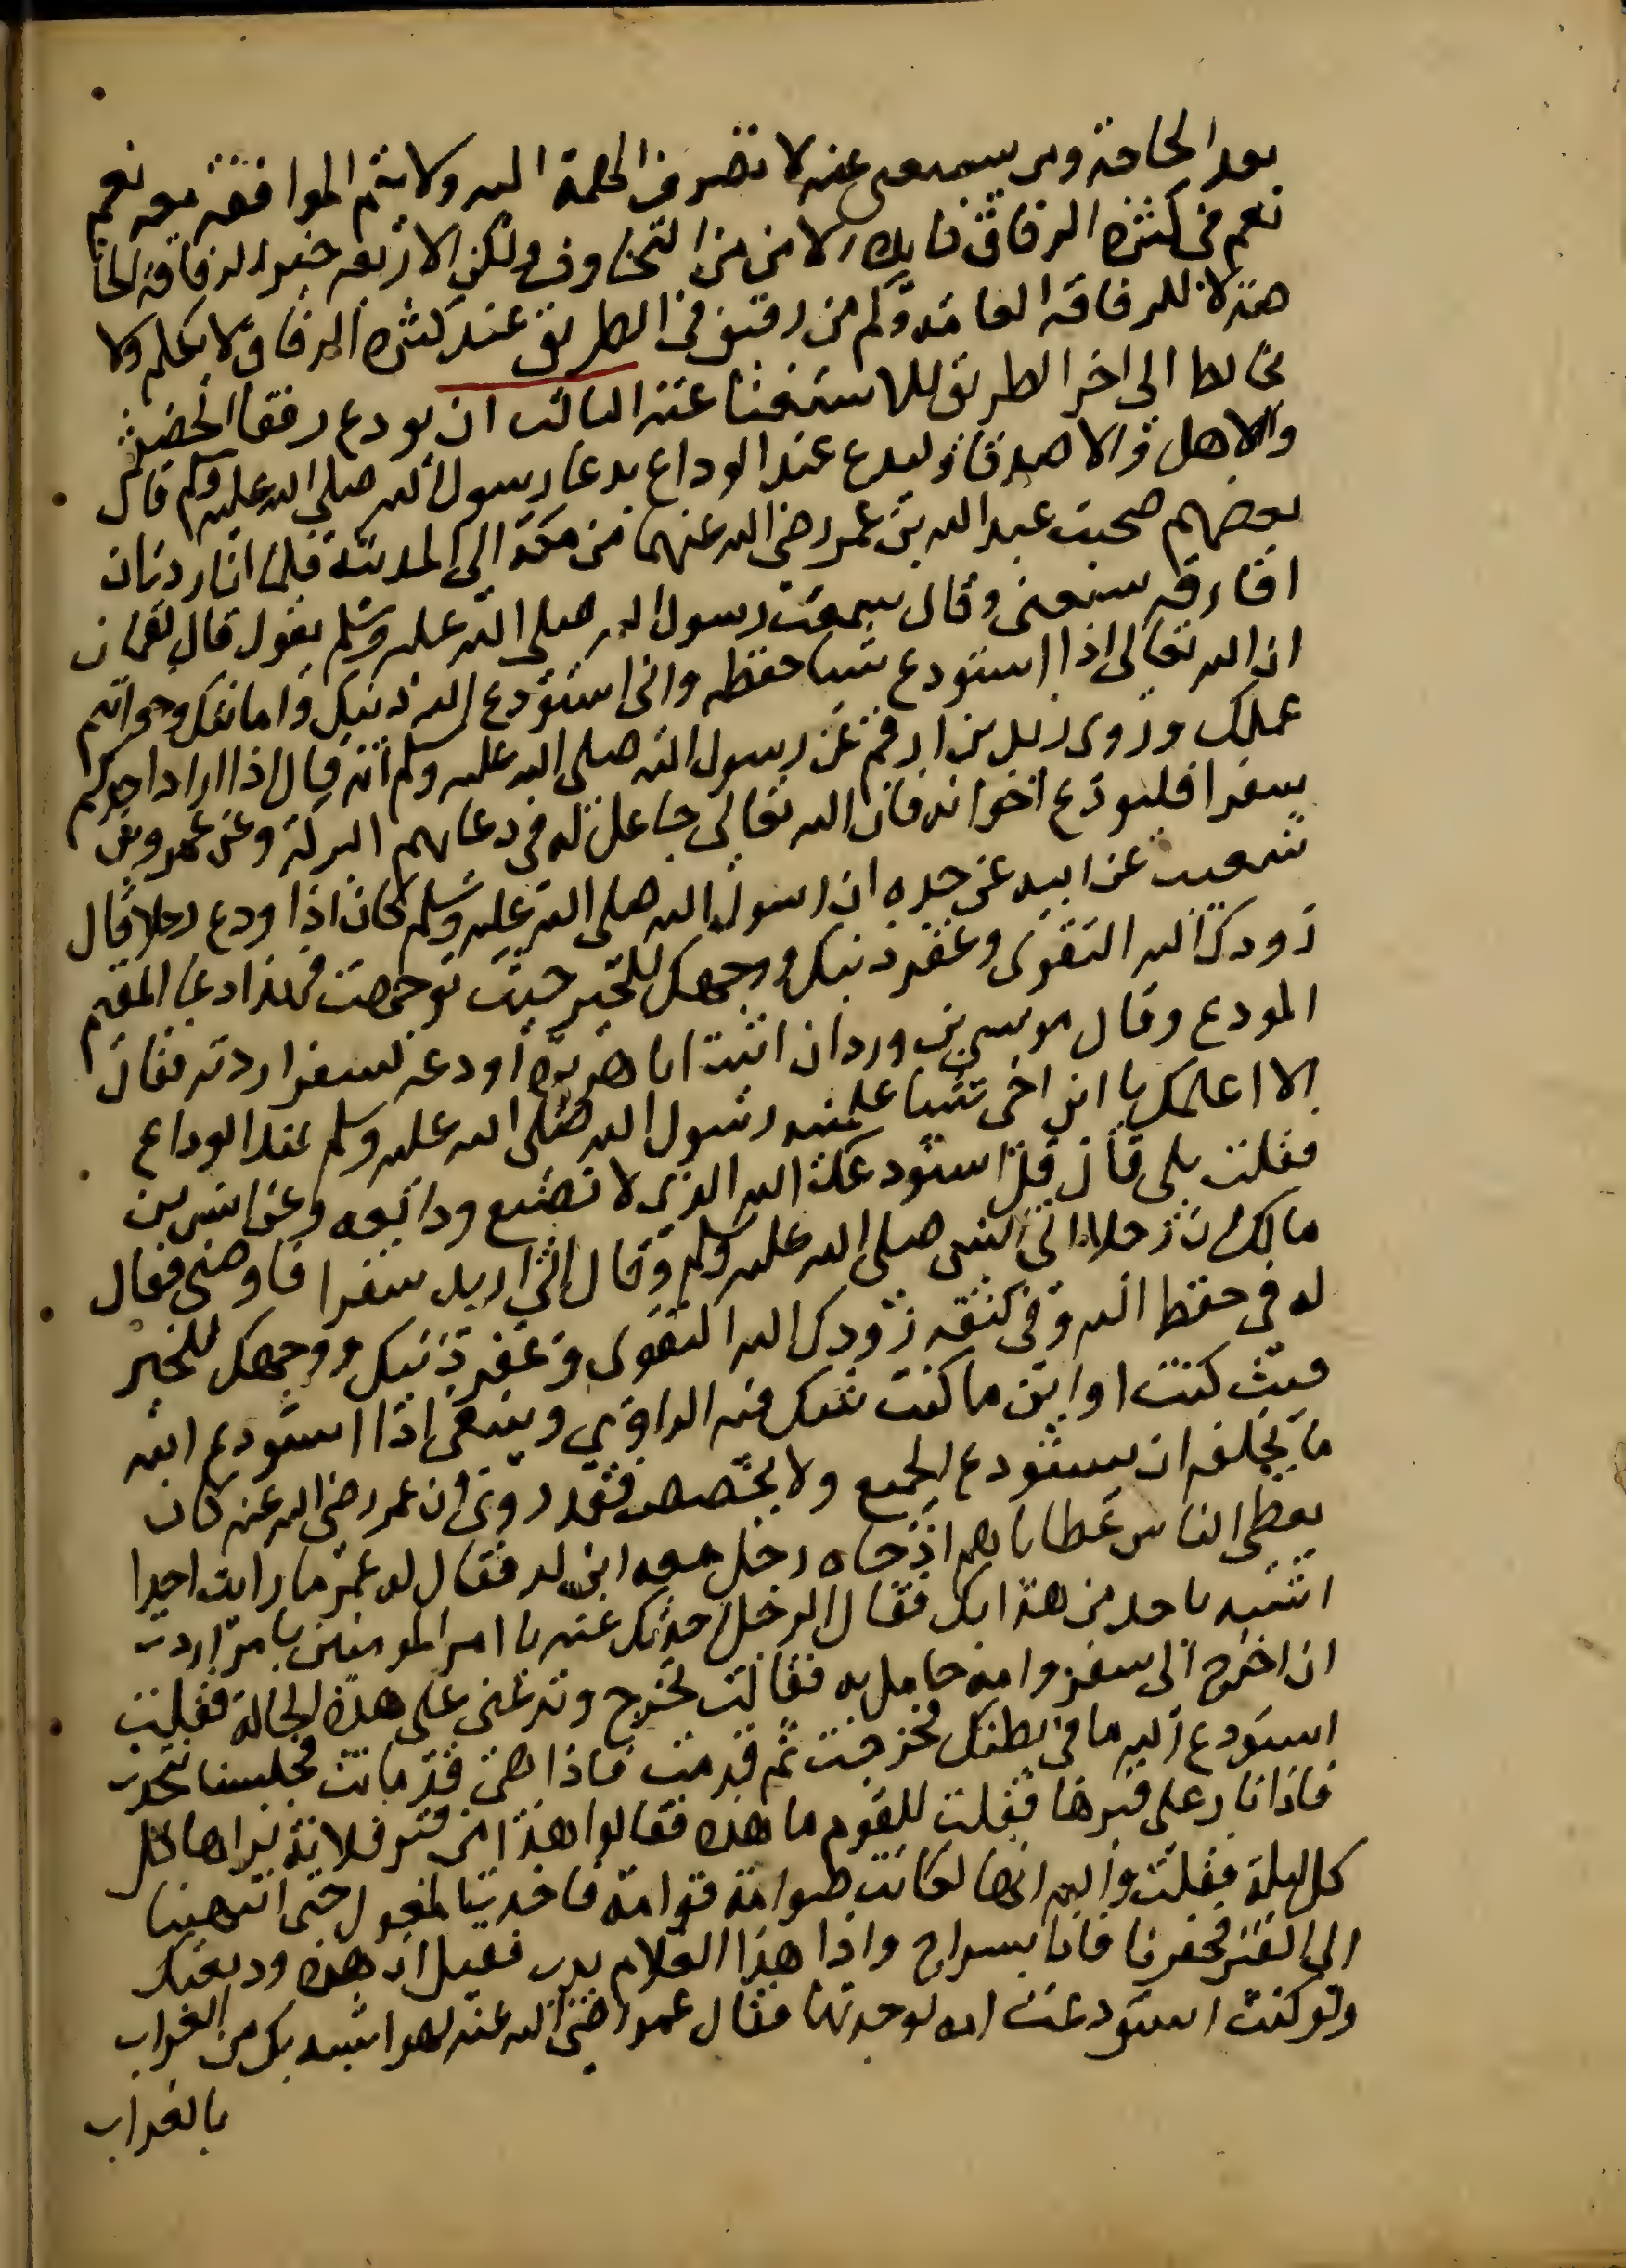 بعد الحاجة ومن يستغنى عنه لا تنصرف الهمة اليه ولا تتم الموافقة معه نعم
نعم فى كثرة الرفاق فايدة الامن من المخاوف ولكن الاربعة خير للرفاقة الخا
صة لا للرفاقة العامة وكم من رفيق فى الطريق عند كثرة الرفاق لا يكلم ولا
يخالط الى اخر الطريق للاستغنا عنه الثالث ان يودع رفقا الحضر
والاهل والاصدقا وليدع عند الوداع بدعا رسول الله صلى الله عليه وسلم قال
بعضهم صحبت عبد الله بن عمر رضى الله عنهما من مكة الى المدينة فلما اردت ان
افارقه شيعنى وقال سمعت رسول الله صلى الله عليه وسلم يقول قال لقمان
ان الله تعالى اذا استودع شيا حفظه وانى استودع الله دينك وامانتك وخواتيم
عملك وروى زيد بن ارقم عن رسول الله صلى الله عليه وسلم انه قال اذا اراد احدكم
سفرا فليودع اخوانه فان الله تعالى جاعل له فى دعايهم البركة وعن عمرو بن
شعيب عن ابيه عن جده ان رسول الله صلى الله عليه وسلم كان اذا ودع رجلا قال
زودك الله التقوى وغفر ذنبك ووجهك للخير حيث توجهت فهذا دعا المقيم
المودع وقال موسى بن وردان اتيت ابا هريرة اودعه لسفر اردته فقال
الا اعلمك يا ابن اخى شيا علمنيه رسول الله صلى الله عليه وسلم عند الوداع
فقلت بلى قال قل استودعك الله الذى لا تضيع ودايعه وعن انس بن
مالك ان رجلا اتى النبى صلى الله عليه وسلم وقال انى اريد سفرا فاوصنى فقال
له فى حفظ الله وفى كنفه زودك الله التقوى وغفر ذنبك ووجهك للخير
حيث كنت او اين ما كنت شك فيه الراوى وينبغى اذا استودع الله
ما يخلفه ان يستودع الجميع ولا يخصص فقد روى ان عمر رضى الله عنه كان
يعطى الناس عطاياهم اذ جاه رجل معه ابن له فقال له عمر ما رايت احدا
اشبه باحد من هذا بك فقال الرجل احدثك عنه يا امير المومنين بامر اردت
ان اخرج الى سفر وامه حامل به فقالت تخرج وتدعنى على هذه الحالة فقلت
استودع الله ما فى بطنك فخرجت ثم قدمت فاذا هى قد ماتت فجلسنا نتحدث
فاذا نار على قبرها فقلت للقوم ما هذه فقالوا هذا من قبر فلانة نراها كل
كل ليلة فقلت والله انها لكانت صوامة قوامة فاخذت المعول حتى انتهينا
الى القبر فحفرنا فاذا بسراج واذا هذا الغلام يدب فقيل ان هذه وديعتك
ولو كنت استودعت امه لوجدتها فقال عمر رضى الله عنه لهو اشبه بك من الغراب
بالغراب